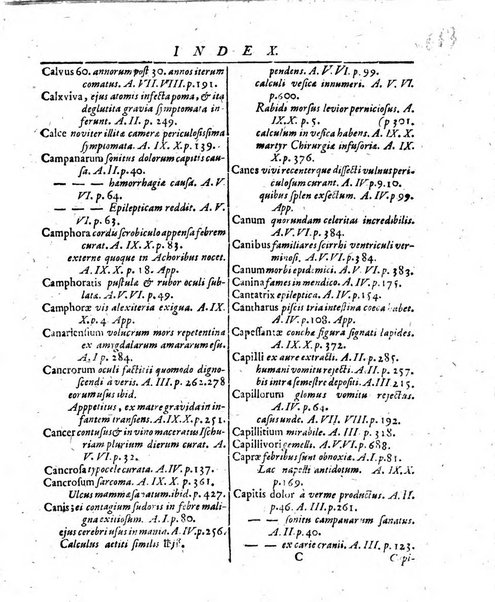 INDEX.
Calvus 60. annorum post 30. annos iterum
comatus. A. VII. VIII. p. 191.
Calxviva, ejus atomis infecta poma, & ita
deglutita gravia symptomata in-
ferunt. A. II. p. 249.
Calce noviter illitæ cameræ periculosissima
symptomata. A. IX. X. p. 139.
Campanarum sonitus dolorum capitis cau-
sa. A. II. p. 40.
— — — hæmorrhagiæ causa. A. V.
VI. p. 64.
— — — Epilepticam reddit. A. V.
VI. p. 63.
Camphora cordis scrobiculo appensa febrem
curat. A. IX. X. p. 83.
externe quoque in Achoribus nocet.
A. IX. X. p. 18. App.
Camphoratis pustula & rubor oculi sub-
lata. A. V. VI. p. 49.
Camphoræ vis alexiteria exigua. A. IX.
X. p. 4. App.
Canariensium volucrum mors repentetina
ex amygdalarum amararum esu.
A. I p. 284.
Cancrorum oculi factitii quomodo digno-
scendi à veris. A. III. p. 262. 278
eorum usus ibid.
Apppetitus, ex matre gravida in in-
fantem transiens. A. IX. X. p. 251.
Cancer contusus & in vino maceratus Ischu-
riam plurium dierum curat. A.
V. VI. p. 32.
Cancrosa typocele curata. A. IV. p. 137.
Cancrosum sarcoma. A. IX. X. p. 361.
Ulcus mammæ sanatum. ibid. p. 427.
Canis sei contagium sudoris in febre mali-
gna exitiosum. A. I. p. 80.
ejus cerebri usus in mania. A. IV. p. 256.
Calculus aetiti similis
pendens. A. V. VI. p. 99.
calculi vesicæ innumeri. A. V. VI.
p. 600.
Rabidi morsus levior perniciosus. A.
IX. X. p. 5. (p 301.
calculum in vesica habens. A. IX. X.
martyr Chirurgiæ infusoriæ. A. IX.
X. p. 376.
Canes vivi recenter que dissecti vulnus peri-
culosum curant. A. IV. p. 9. 10.
quibus splen exsectum. A. IV. p. 99.
App.
Canum quorundam celeritas incredibilis.
A. V. VI. p. 384.
Canibus familiares scirrhi ventriculi ver-
minosi. A. V. VI. p. 384.
Canum morbi epidemici. A. V. VI. p. 383.
Canina fames in mendico. A. IV. p. 175.
Cantatrix epileptica. A. IV. p. 154.
Cantharus piscis tria intestina coeca habet.
A. IX. X. p. 375.
Capessantæ conchæ figura signati lapides.
A. IX. X. p. 372.
Capilli ex aure extracti. A. II. p. 285.
humani vomitu rejecti. A. II. p. 257.
bis intra semestre depositi. A. III. p. 215.
Capillorum glomus vomitu rejectus.
A. IV. p. 64.
casus unde. A. VII. p. 97.
Capillitium mirabile. A. III. p. 318.
Capillivori gemelli. A. V. VI. p. 68.
Capræ febribus sunt obnoxiæ. A. I. p. 81.
Lac napelli antidotum. A. IX. X.
p. 169.
Capitis dolor à verme productus. A. II.
A. III. p. 261.
— — sonitu campanarum sanatus.
A. II. p. 40.
— — ex carie cranii. A. III. p. 123.
C Capi-